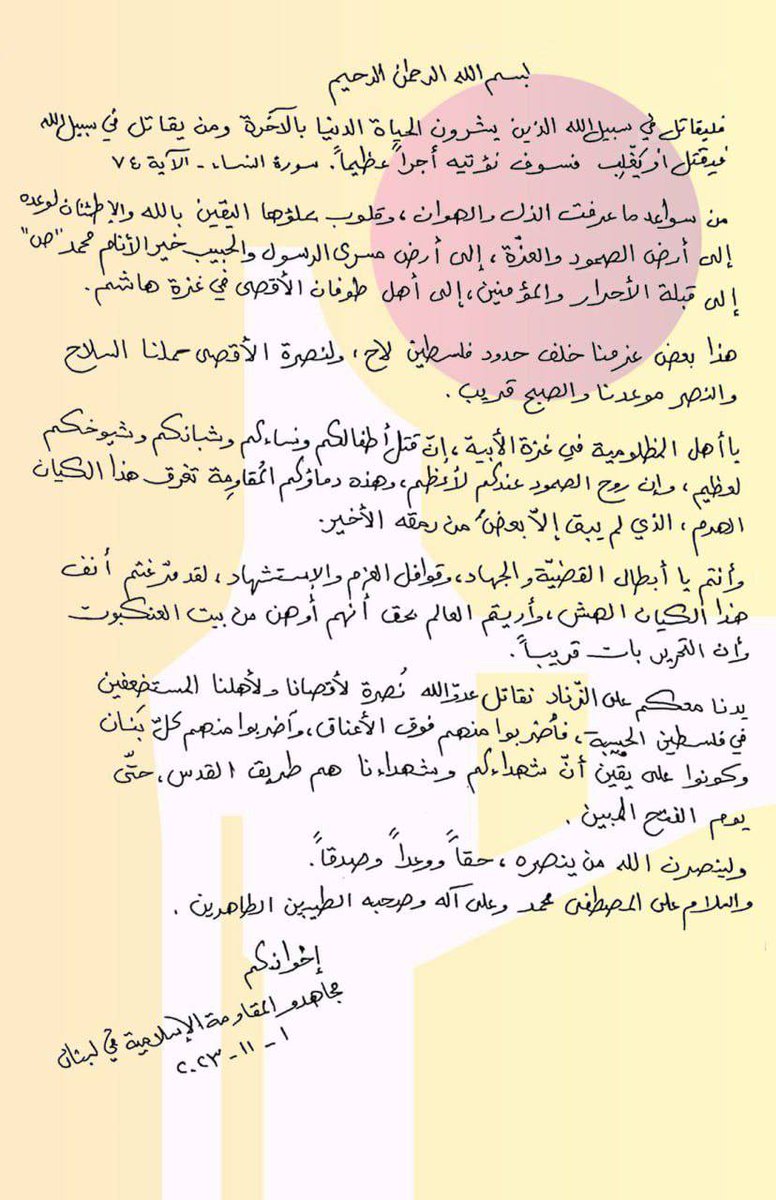 بسم الله الرحمن الرحيم
فليقاتل في سبيل الله الذين يشرون الحياة الدنيا بالآخرة ومن يقاتل في سبيل الله
فيقتل أو يَغْلِب فسوف نؤتيه أجراً عظيماً. سورة النساء - الآية ٧٤
من سواعد ما عرفت الذل والهوان، وقلوب يملؤها اليقين بالله والإطمئنان لوعده
إلى أرض الصمود والعزّة، إلى أرض مسرى الرسول والحبيب خير الأنام محمد "ص"
إلى قبلة الأحرار والمؤمنين، إلى أهل طوفان الأقصى في غزة هاشم.
هذا بعض عزمنا خلف حدود فلسطين لاح، ولنصرة الأقصى حملنا السلاح
والنصر موعدنا والصبح قريب.
يا أهل المظلومية في غزة الأبية، إنّ قتل أطفالكم ونساءكم وشبانكم وشيوخكم
لعظيم، وإن روح الصمود عندكم لأعظم، وهذه دماؤكم المُقاوِمة تغرق هذا الكيان
الهرم، الذي لم يبق إلاّ بعضٌ من رمقه الأخير.
وأنتم يا أبطال القضيّة والجهاد، وقوافل العزم والإستشهاد، لقد مرّغتم أنف
هذا الكيان الهش، وأريتم العالم بحق أنهم أوهن من بيت العنكبوت
وأن التحرير بات قريباً.
يدنا معكم على الزّناد نقاتل عدوّ الله نُصرة لأقصانا ولأهلنا المستضعفين
في فلسطين الحبيبة، فأضربوا منهم فوق الأعناق، وأضربوا منهم كلّ بَنان
وكونوا على يقين أنّ شهداءكم وشهداءنا هم طريق القدس، حتّى
يوم الفتح المبين.
ولينصرن الله من ينصره، حقاً ووعداً وصدقاً.
والسلام على المصطفى محمد وعلى آله وصحبه الطيبين الطاهرين.
إخوانكم
مجاهدو المقاومة الإسلامية في لبنان
١ - ١١ - ٢٠٢٣